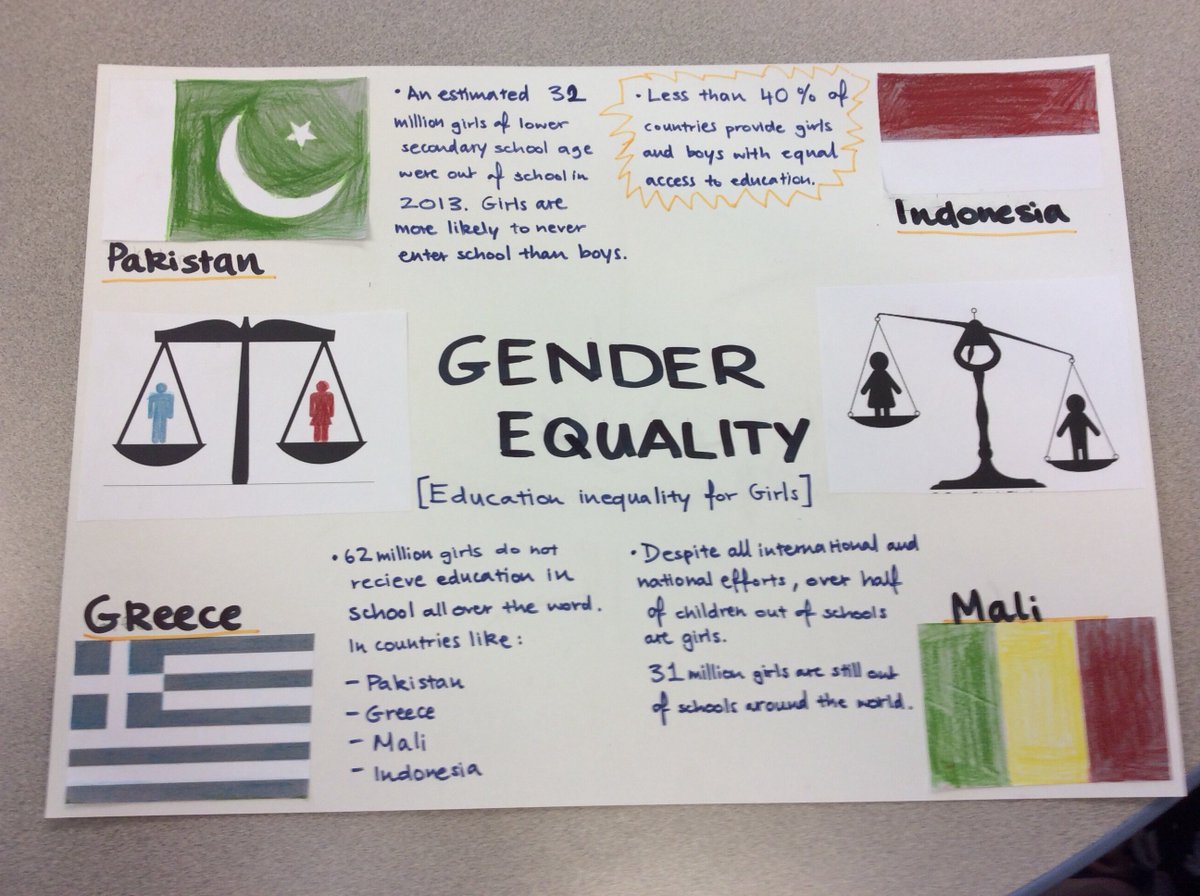 • An estimated 31
million girls of lower
secondary school age
were out of school in
2013. Girls are
more likely to never
enter school than boys.
• Less than 40% of
countries provide girls
and boys with equal
access to education.
Indonesia
Pakistan
GENDER
EQUALITY
[Education inequality for Girls]
Greece
• 62 million girls do not
recieve education in
school all over the word.
In countries like:
- Pakistan
- Greece
- Mali
- Indonesia
• Despite all international and
national efforts, over half
of children out of schools
are girls.
31 million girls are still out
of schools around the world.
Mali